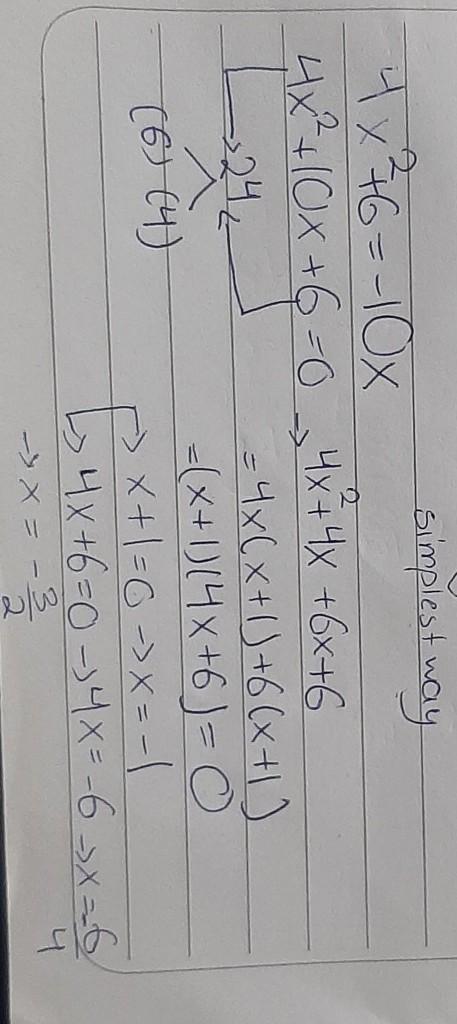 simplest way
4x²+6=-10x
4x²+10x+6=0 → 4x²+4x+6x+6
→24← =4x(x+1)+6(x+1)
(6)(4) =(x+1)(4x+6)=0
→ x+1=0 → x=-1
→ 4x+6=0 → 4x=-6 → x=-6/4
→ x=-3/2